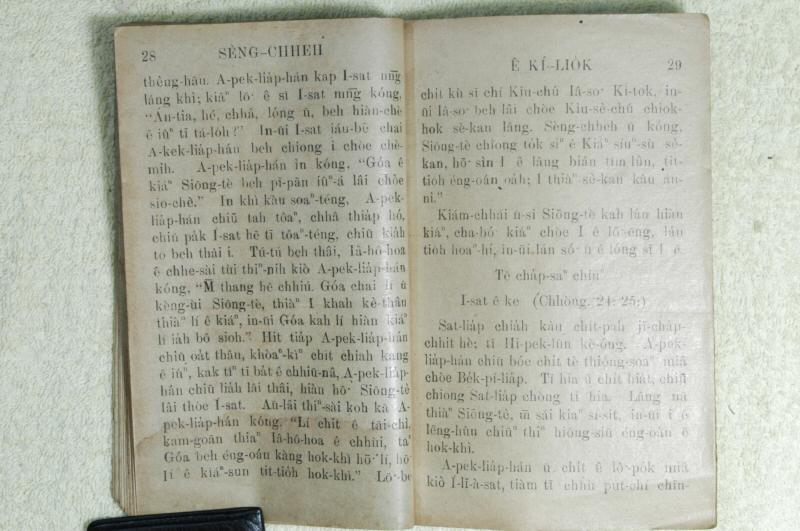 28 SÈNG-CHHEH
thêng-hāu. A-pek-lia̍p-hán kap I-sat nn̄g
lâng khì; kiáⁿ lō· ê sî I-sat mn̄g kóng,
“Án-tia, hé, chhâ, lóng ū, beh hiàn-chè
ê iûⁿ tī tá-lo̍h?” In-ūi I-sat iáu-bē chai
A-kek-lia̍p-hán beh chiong i chòe chè-
mi̍h. A-pek-lia̍p-hán ìn kóng, “Góa ê
kiáⁿ Siōng-tè beh pī-pān iûⁿ-á lâi chòe
sio-chè.” In khì kàu soaⁿ-téng, A-pek-
lia̍p-hán chiū ta̍h tôaⁿ, chhâ thia̍p hó,
chiū pa̍k I-sat hē tī tôaⁿ-téng, chiū kia̍h
to beh thâi i. Tú-tú beh thâi, Iâ-hô-hoa
ê chhe-sài tùi thiⁿ-nih kiò A-pek-lia̍p-hán
kóng, “M̄ thang hē chhiú. Góa chai lí ū
kèng-ùi Siōng-tè, thiàⁿ I khah kè-thâu
thiàⁿ lí ê kiáⁿ, in-ūi Góa kah lí hiàn kiáⁿ
lí iáh bô sioh.” Hit tia̍p A-pek-lia̍p-hán
chiū oa̍t thâu, khòaⁿ-kìⁿ chit chiah kang
ê iûⁿ, kak tîⁿ tī ba̍t ê chhiū-nâ, A-pek-lia̍p-
hán chiū lia̍h lâi thâi, hiàn hō· Siōng-tè
lâi thòe I-sat. Aū-lâi thiⁿ-sài koh kā A-
pek-lia̍p-hán kóng, “Lí chit ê tāi-chì,
kam-goān thiaⁿ Iâ-hô-hoa ê chhiùi, taⁿ
Góa beh éng-oán kàng hok-khì hō· lí, hō·
lí ê kiáⁿ-sun tit-tio̍h hok-khì.” Lō·-be
Ê KÍ-LIO̍K 29
chit kù sī chí Kiù-chú Iâ-so· Ki-tok, in-
ūi Iâ-so· beh lâi chòe Kiù-sè-chú chiok-
hok sè-kan lâng. Sèng-chheh ū kóng,
Siōng-tè chiong to̍k siⁿ ê Kiáⁿ siúⁿ-sù sè-
kan, hō· sìn I ê lâng bián tîm-lûn, tit-
tio̍h éng-oán oa̍h; I thiàⁿ sè-kan kàu án-
ni.”
Kiám-chhái ū-sî Siōng-tè kah lán hiàn
kiáⁿ, cha-bó· kiáⁿ chòe I ê lō·-ēng, lán
tio̍h hoaⁿ-hí, in-ūi lán só· ū ê lóng sī I ê.
Tē cha̍p-saⁿ chiuⁿ
I-sat ê ke (Chhòng. 24: 25;)
Sat-lia̍p chia̍h kàu chi̍t-pah jī-cha̍p-
chhit hè; tī Hi-pek-lûn kè-óng. A-pek-
lia̍p-hán chiū bóe chi̍t tè thióng-soāⁿ miâ
chòe Be̍k-pí-lia̍p. Tī hia ū chi̍t hia̍t, chiū
chiong Sat-lia̍p chòng tī hia. Lâng nā
thiàⁿ Siōng-tè, m̄ sái kiaⁿ sí-sit, in-ūi i ê
lêng-hûn chiūⁿ thiⁿ hióng-siū éng-oán ê
hok-khì.
A-pek-lia̍p-hán ū chi̍t ê lô·-po̍k miâ
kiò Í-lī-á-sat, tiàm tī chhù put-chí chīn-